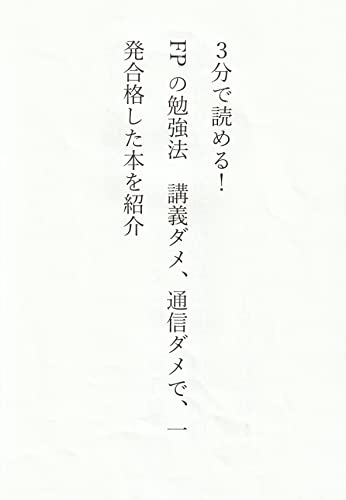 3分で読める!
FPの勉強法　講義ダメ、通信ダメで、一
発合格した本を紹介